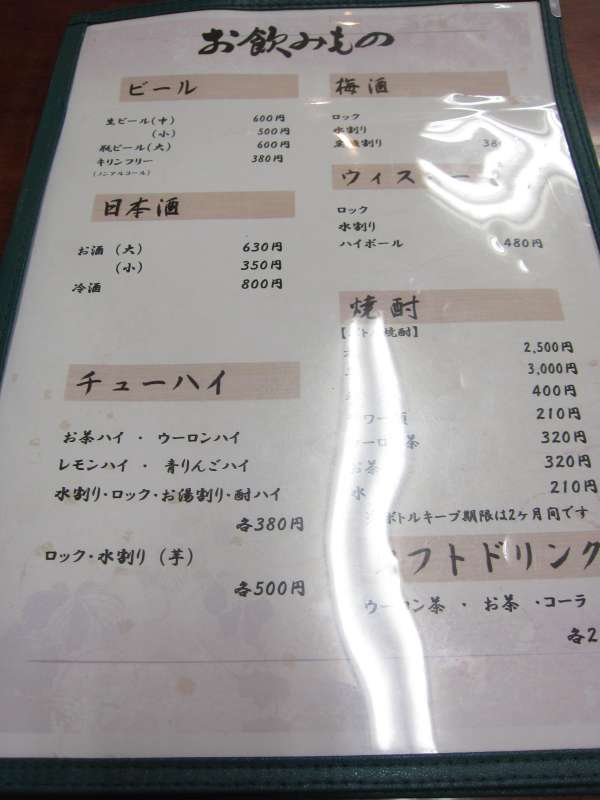 お飲みもの
ビール
生ビール(中) 600円
(小) 500円
瓶ビール(大) 600円
キリンフリー 380円
(ノンアルコール)
日本酒
お酒(大) 630円
(小) 350円
冷酒 800円
チューハイ
お茶ハイ・ウーロンハイ
レモンハイ・青りんごハイ
水割り・ロック・お湯割り・酎ハイ
各380円
ロック・水割り(芋)
各500円
梅酒
ロック
水割り
割り 38
ウィス
ロック
水割り
ハイボール 480円
焼酎
焼酎】
2,500円
3,000円
400円
210円
茶 320円
お茶 320円
水 210円
ボトルキープ期限は2ヶ月間です
フトドリンク
ウーロン茶・お茶・コーラ
各2